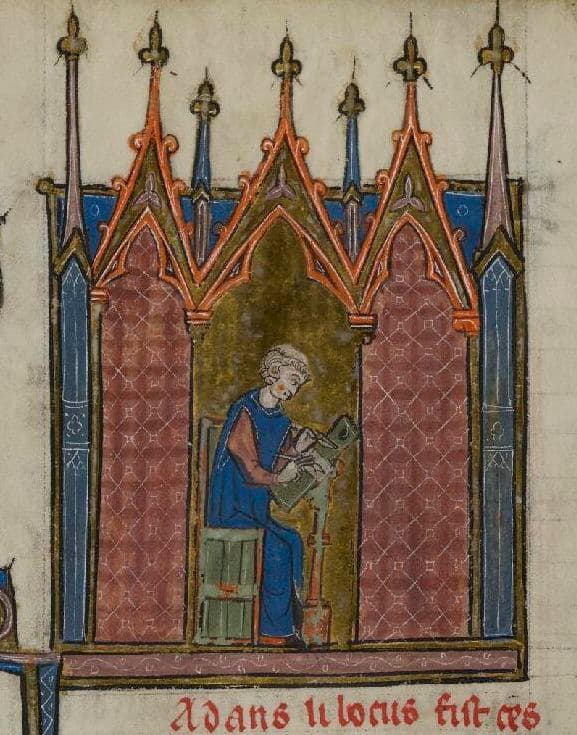 Adans li bocus fist ces